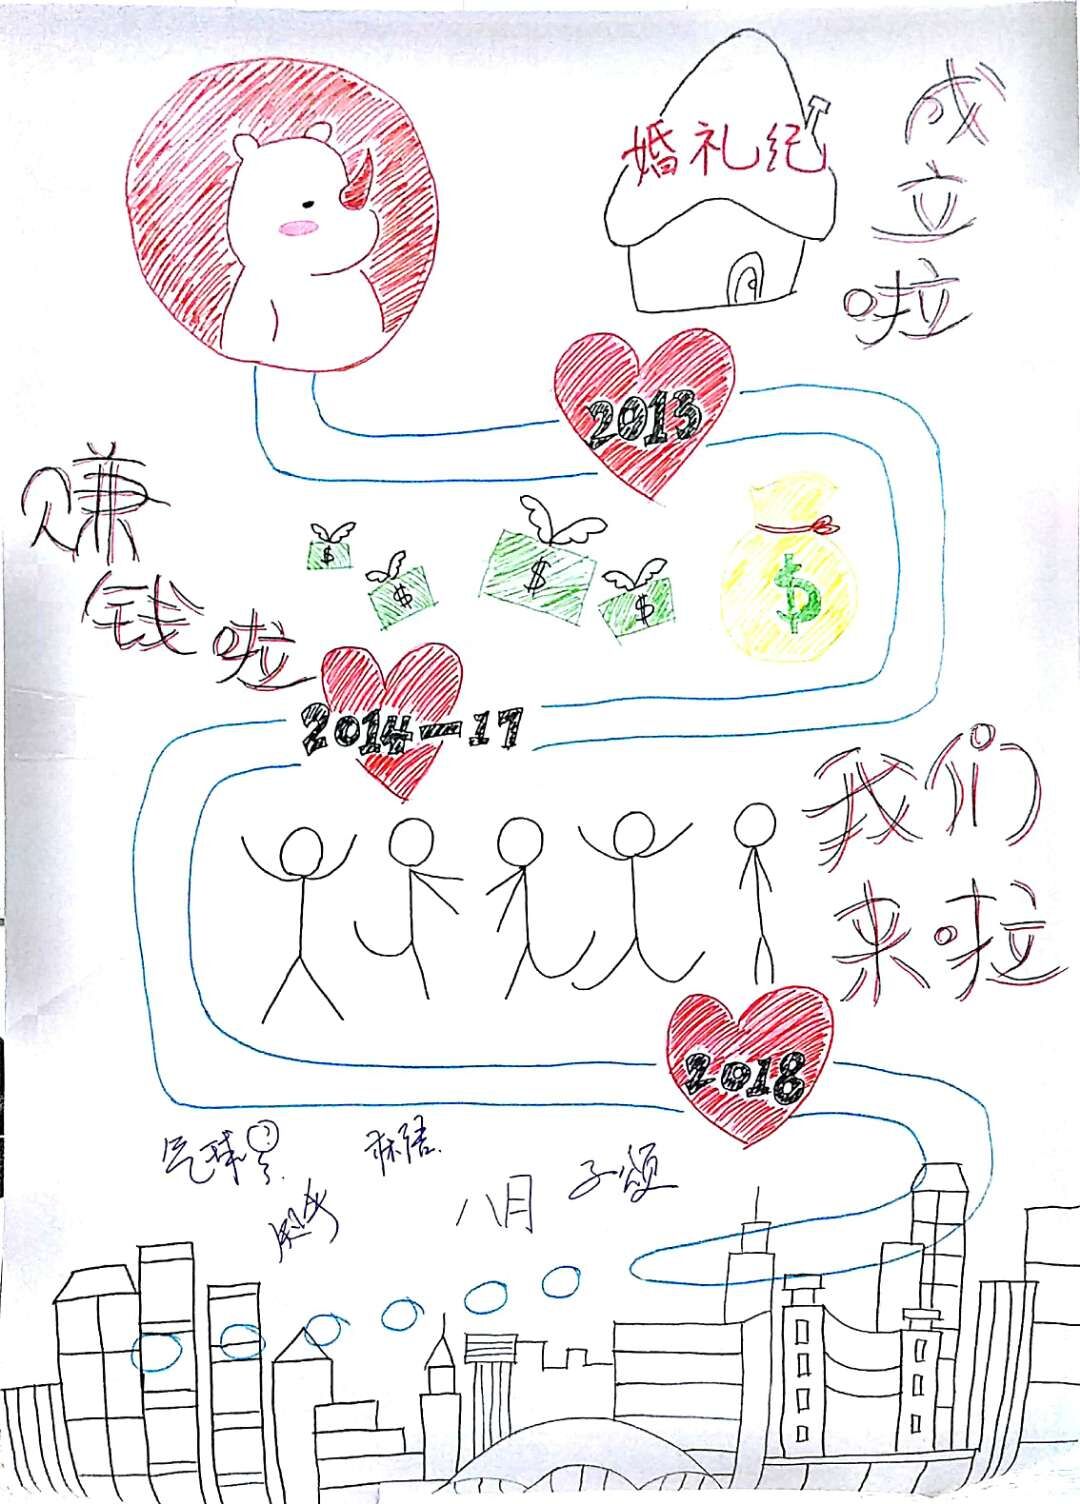 婚礼纪
成立啦
2013
$
$
$
$
$
赚钱啦
2014-17
我们来啦
2018
气球
八月
子颂